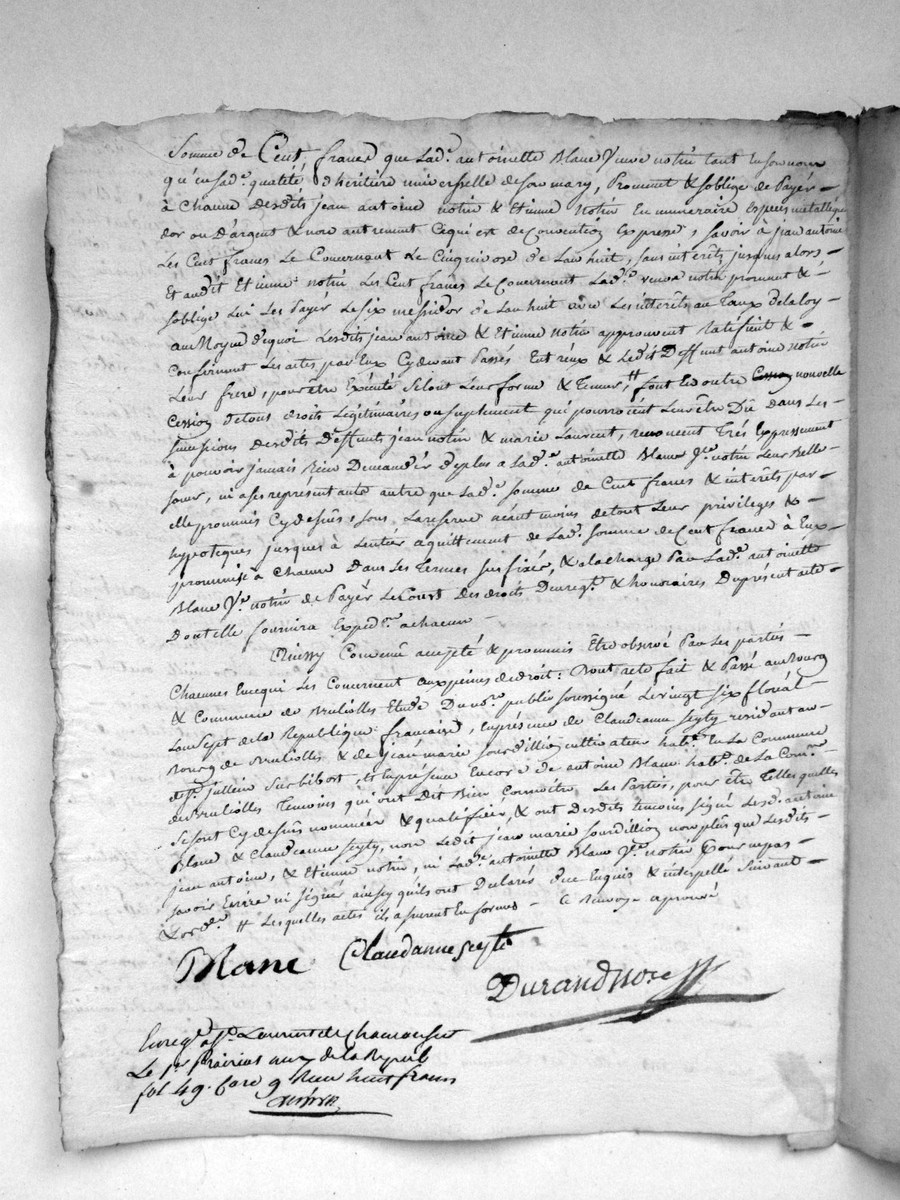 Somme de Cent francs que Lad.e antoinette Blanc Veuve notin tant en son nom
qu'en sad.e qualité d'héritière universelle de son mary, Proment & soblige de Payér
à Chacun desdits jean antoine notin & Etienne Notin En numeraire Espèces metallique
dor ou D'argent & non autrement Ce qui est de Convention Expresse, savoir à jean antoine
Les Cent francs Le Concernant Le Cinq nivose de Lan huit, sans intérêts jusques alors,
Et audit Etienne notin Les Cent francs Le Concernant Lad.e veuve notin proment &
soblige Lui Les Payér Le six messidor de Lan huit avec Les intérêts au Taux de la loy
au Moyen de quoi Lesdits jean antoine & Etienne notin approuvent Ratifient &
Conferment Les actes par Eux Cydevant Passés Entreux & Ledit Deffunt antoine notin
Leur frere, pour être Exécuté selont Leur forme & Teneur, # font En outre Cession nouvelle
Cession de tous droits Légitimaires ou suplement qui pourroient Leur être Dû dans Les
successions desdits deffunts jean notin & marie Laurent, renoncent Trés Expressement
à pouvoir jamais Rien Demandér de plus a Lad.e antoinette Blanc V.ve notin Leur Belle
soeur, ni a ses représentants autre que Lad.e somme de Cent francs & intérêts par
elle prommis Cy dessus, sous La reserve néantmoins de tout Leur privileges &
hypoteques jusques à Lentier aquittement de Lad.e somme de Cent francs à Eux
prommise à Chacun Dans Les Termes sus fixés, & a la charge Par Lad.e antoinette
Blanc V.e notin de Payér Le Coust des droits Denreg.t & honoraires Du présent acte
Dont elle fournira Expéd.on a chacun
Ainssy Convenû accepté & prommis Être observé Par Les parties
Chacunes En ce qui Les Concernent aux peines de droit: Dont acte fait & Passé au Bourg
& Commune de Brulioles Etude Du no.re public soussigné Le vingt six floréal
Lan sept de la Republique francaise, En présence de Claudeanne Seyty residant au
Bourg de Brulioles & de jean marie sourdillion cultivateur hab.t En La Commune
de s.t jullien sur bibost, et En présence Encore de antoine Blanc hab.t de La Com.ne
de Brulioles Temoins qui ont Dit Bien Connoitre Les Parties, pour être Telles quelles
se sont Cy dessus nommées & qualiffiées, & ont Desdits temoins signé Lesd. antoine
Blanc & Claudeanne Seyty, non Ledit jean marie sourdillion non plus que Lesdits
jean antoine, & Etienne notin, ni Lad.e antoinette Blanc V.e notin Pour ne pas
savoir Ecrire ni signé ainsy quils ont Declarés De ce Enquis & interpellé suivant
L'ord.e # Lesquelles actes ils assurent En formes - Ce Renvoye aprouvé
Blanc Claudanne seyte
Durand nore
Enreg.é a s.t Laurent de Chamousset
Le 1.er prairial an 7 de la Repub
fol 49. Case 9 Reçu huit francs